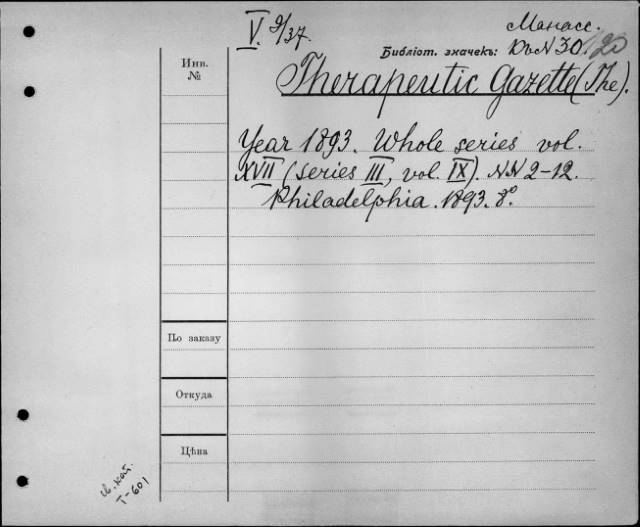 V. 9/37.
Манасс.
Библіот. значекъ: Къ N 30.
Инв.
№
Therapeutic Gazette (The).
Year 1893. Whole series vol.
XVII (series III, vol. IX). NN 2-12.
Philadelphia. 1893. 8°.
По заказу
Откуда
Цѣна
св. кат.
T-601